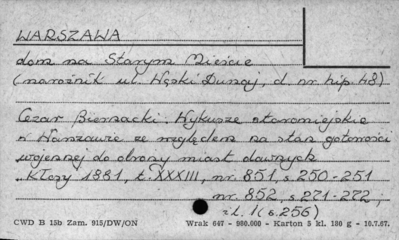 WARSZAWA
dom na Starym Mieście
(narożnik ul. Wąski Dunaj, d. nr. hip. 48)
Cezar Biernacki. Wykusze staromiejskie
w Warszawie ze względem na stan gotowości
wojennej do obrony miast dawnych
"Kłosy 1881, t. XXXIII, nr. 851, s. 250-251
nr. 852, s. 271-272,
il. 1 (s. 256)
CWD B 15b Zam. 915/DW/ON Wrak 647 - 980.000 - Karton 5 kl. 180 g - 10.7.67.